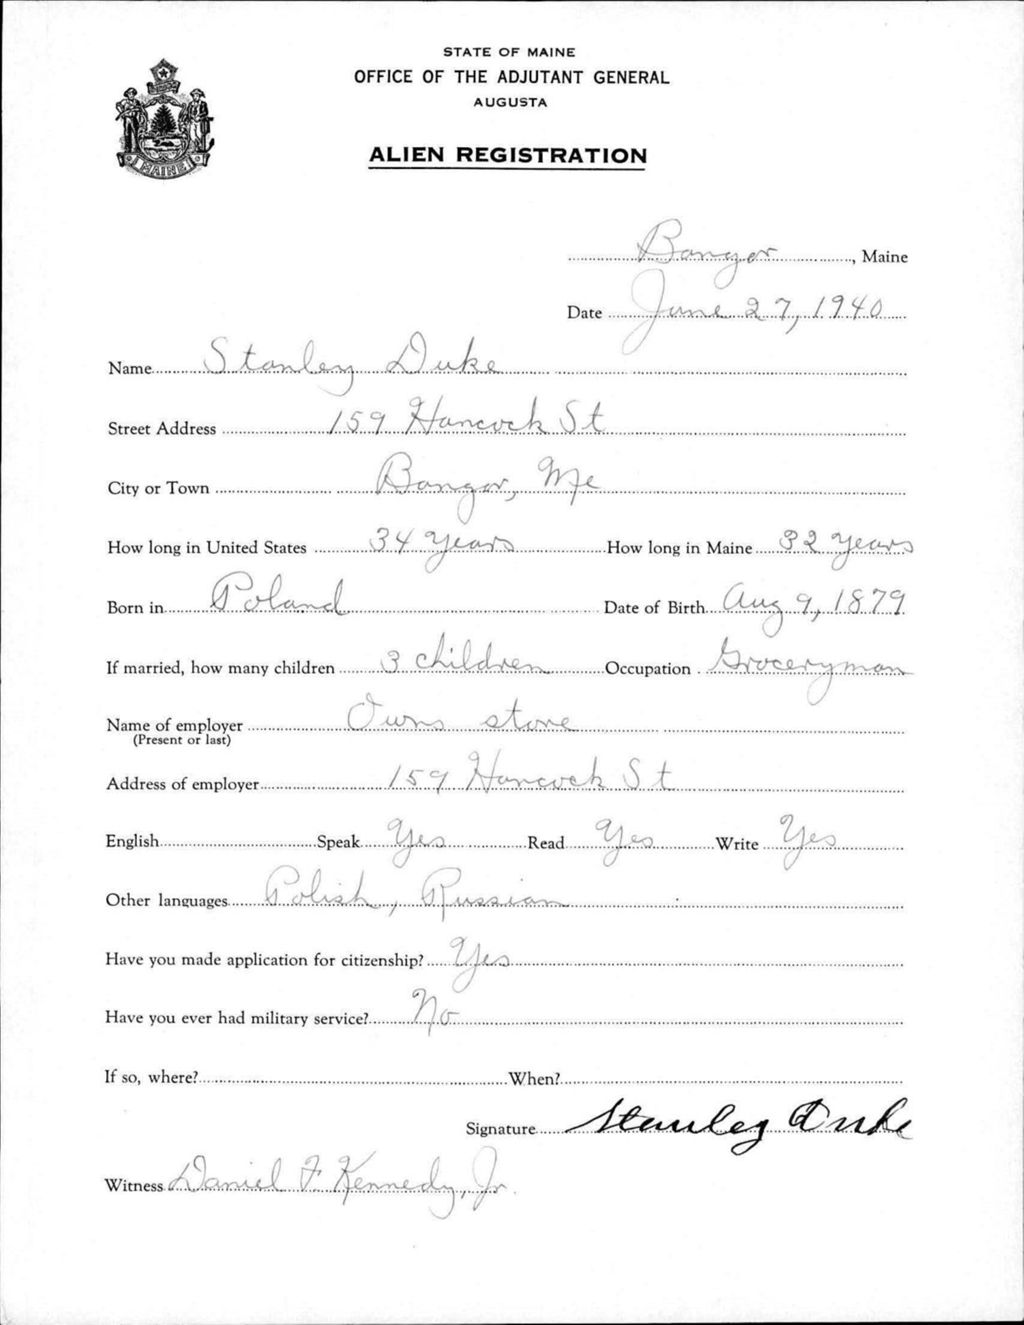 STATE OF MAINE
OFFICE OF THE ADJUTANT GENERAL
AUGUSTA
ALIEN REGISTRATION
MAINE
Bangor, Maine
Date June 27, 1940
Name Stanley Duke
Street Address 159 Hancock St
City or Town Bangor, Me
How long in United States 34 years How long in Maine 32 years
Born in Poland Date of Birth Aug 9, 1879
If married, how many children 3 children Occupation Groceryman
Name of employer Owns store
(Present or last)
Address of employer 159 Hancock St
English Speak Yes Read Yes Write Yes
Other languages Polish, Russian
Have you made application for citizenship? Yes
Have you ever had military service? No
If so, where? When?
Signature Stanley Duke
Witness Daniel F. Kennedy, Jr.